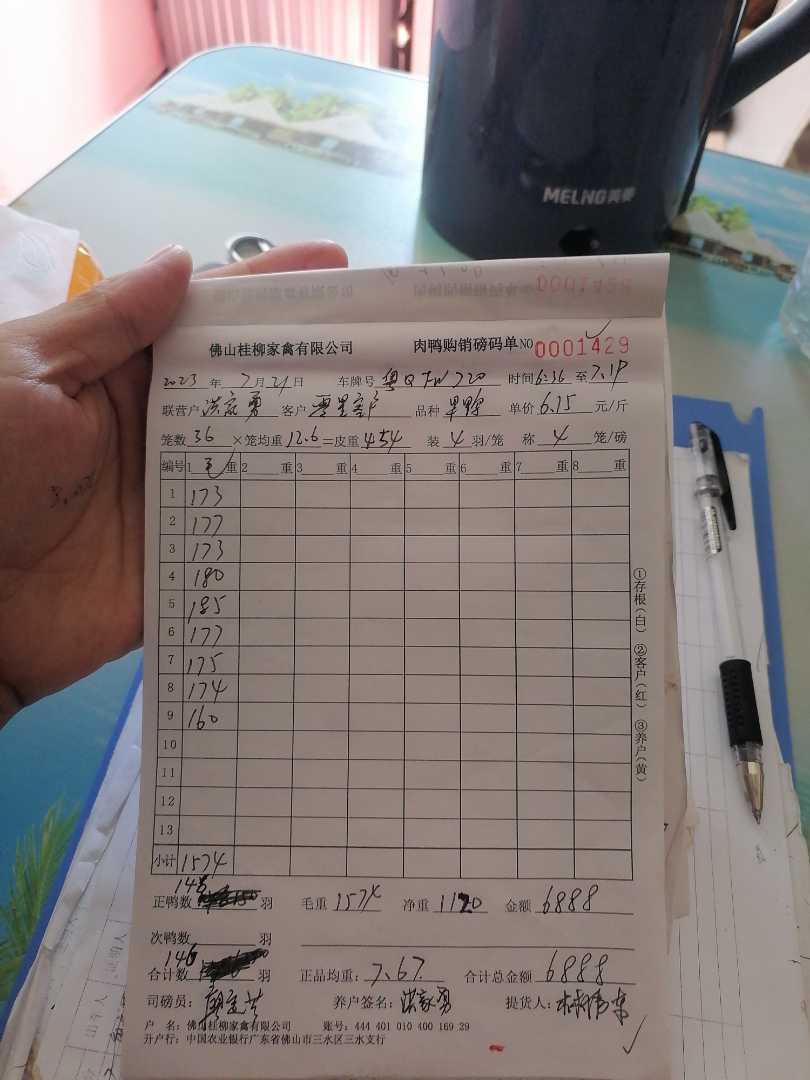 MELNG美菱
佛山桂柳家禽有限公司 肉鸭购销磅码单 NO 0001429
2023 年 7 月 21 日 车牌号 粤Q 720 时间 6:36 至 7:19
联营户 洪家勇 客户 零星客户 品种 单价 6.15 元/斤
笼数 36 ×笼均重 12.6 =皮重 454 装 4 羽/笼 称 4 笼/磅
编号 1 毛 重 2 重 3 重 4 重 5 重 6 重 7 重 8 重
1 173
2 177
3 173
4 180
5 185
6 177
7 175
8 174
9 160
10
11
12
13
小计 1574
正鸭数 146 羽 毛重 1574 净重 1120 金额 6888
次鸭数 羽
合计数 146 羽 正品均重: 7.67 合计总金额 6888
司磅员: 养户签名: 洪家勇 提货人:
户 名: 佛山桂柳家禽有限公司 账号: 444 401 010 400 169 29
开户行: 中国农业银行广东省佛山市三水区三水支行
①存根(白) ②客户(红) ③养户(黄)